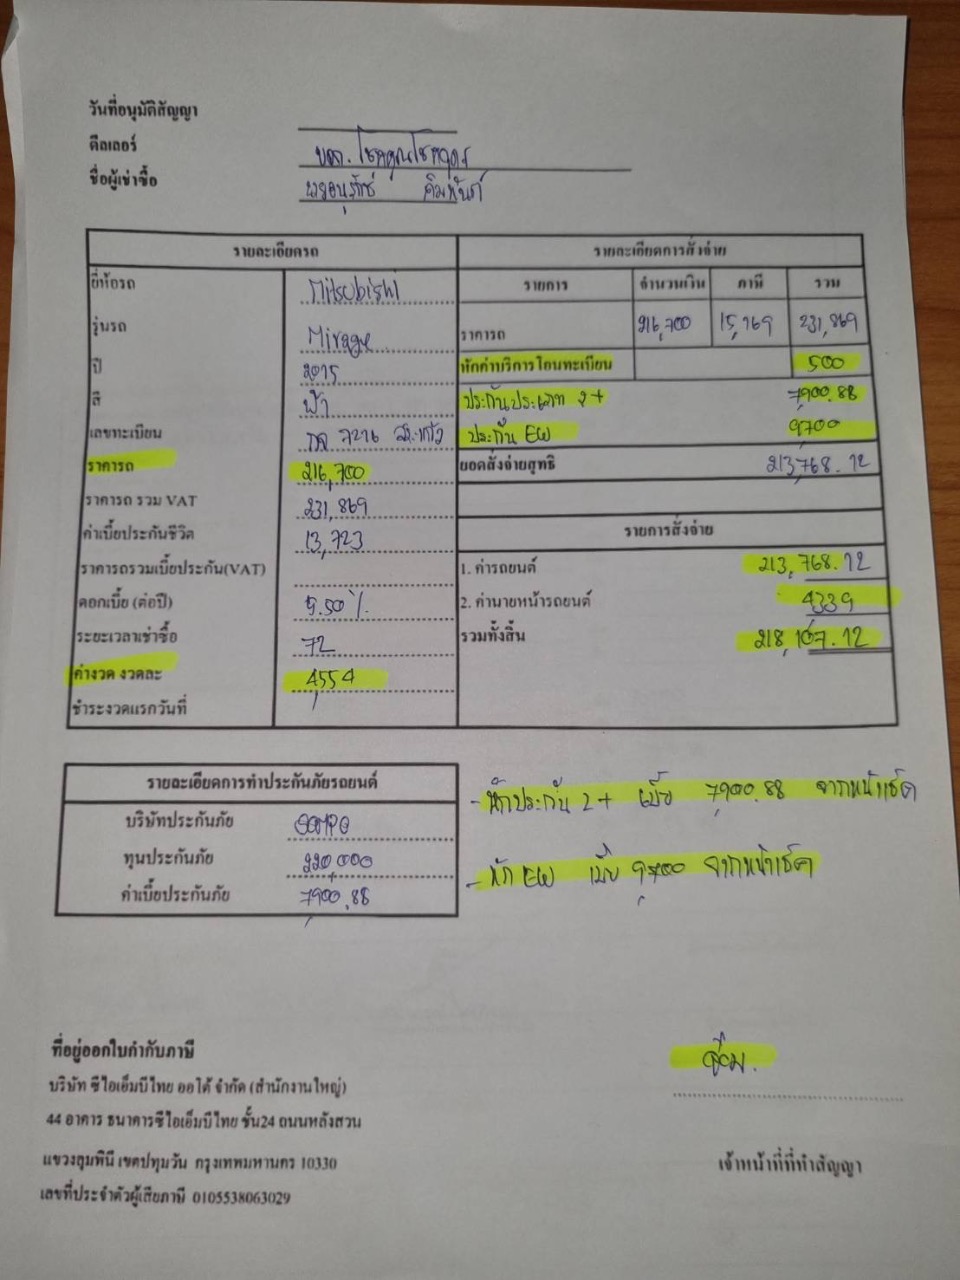 วันที่อนุมัติสัญญา
ดีลเลอร์ บจก. โชคคูณโชคถาวร
ชื่อผู้เช่าซื้อ
รายละเอียดรถ
ยี่ห้อรถ Mitsubishi
รุ่นรถ Mirage
ปี 2015
สี ฟ้า
เลขทะเบียน 7216
ราคารถ 216,700
ราคารถ รวม VAT 231,869
ค่าเบี้ยประกันชีวิต 13,723
ราคารถรวมเบี้ยประกัน(VAT)
ดอกเบี้ย (ต่อปี) 5.50 %
ระยะเวลาเช่าซื้อ 72
ค่างวด งวดละ 4,554
ชำระงวดแรกวันที่
รายละเอียดการสั่งจ่าย
รายการ จำนวนเงิน ภาษี รวม
ราคารถ 216,700 15,169 231,869
หักค่าบริการโอนทะเบียน 500
ประกันประเภท 2+ 7,900.88
ประกัน EW 9,700
ยอดสั่งจ่ายสุทธิ 213,768.12
รายการสั่งจ่าย
1. ค่ารถยนต์ 213,768.12
2. ค่านายหน้ารถยนต์ 4339
รวมทั้งสิ้น 218,107.12
รายละเอียดการทำประกันภัยรถยนต์
บริษัทประกันภัย SOMPO
ทุนประกันภัย 220,000
ค่าเบี้ยประกันภัย 7,900.88
- หักประกัน 2+ เบี้ย 7,900.88 จากหน้าเช็ค
- หัก EW เบี้ย 9,700 จากหน้าเช็ค
ที่อยู่ออกใบกำกับภาษี
บริษัท ซีไอเอ็มบีไทย ออโต้ จำกัด (สำนักงานใหญ่)
44 อาคาร ธนาคารซีไอเอ็มบีไทย ชั้น24 ถนนหลังสวน
แขวงลุมพินี เขตปทุมวัน กรุงเทพมหานคร 10330
เลขที่ประจำตัวผู้เสียภาษี 0105538063029
เจ้าหน้าที่ที่ทำสัญญา